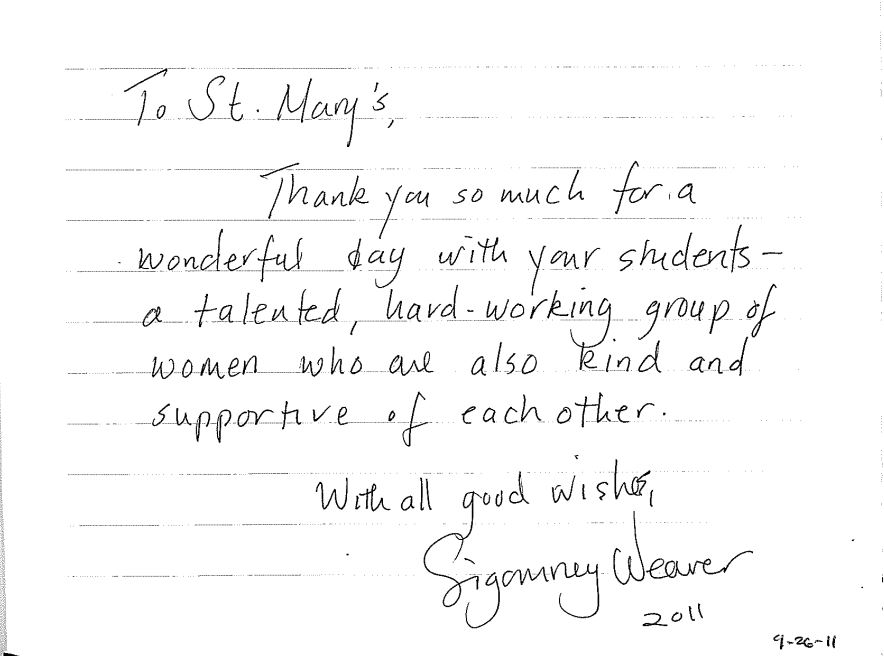 To St. Mary's,
Thank you so much for a
wonderful day with your students –
a talented, hard-working group of
women who are also kind and
supportive of each other.
With all good wishes,
Sigourney Weaver
2011
9-26-11